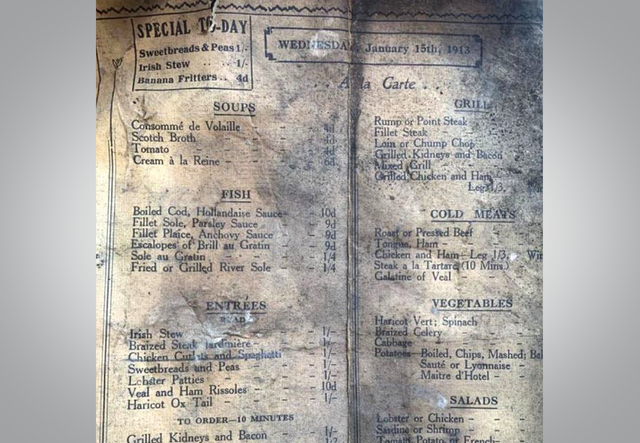 SPECIAL TO-DAY
Sweetbreads & Peas 1/-
Irish Stew .. 1/-
Banana Fritters .. 4d
WEDNESDAY, January 15th, 1913
A la Carte
SOUPS
Consommé de Volaille
Scotch Broth
Tomato
Cream à la Reine 6d
FISH
Boiled Cod, Hollandaise Sauce 10d
Fillet Sole, Parsley Sauce 9d
Fillet Plaice, Anchovy Sauce 9d
Escalopes of Brill au Gratin 9d
Sole au Gratin 1/4
Fried or Grilled River Sole 1/4
ENTRÉES
READY
Irish Stew 1/-
Braized Steak Jardinière 1/-
Chicken Cutlets and Spaghetti 1/-
Sweetbreads and Peas 1/-
Lobster Patties 1/-
Veal and Ham Rissoles 10d
Haricot Ox Tail 1/-
TO ORDER—10 MINUTES
Grilled Kidneys and Bacon
GRILL
Rump or Point Steak
Fillet Steak
Loin or Chump Chop
Grilled Kidneys and Bacon
Mixed Grill
Grilled Chicken and Ham
Leg 1/3,
COLD MEATS
Roast or Pressed Beef
Tongue, Ham
Chicken and Ham—Leg 1/3,
Steak a la Tartare (10 Mins.)
Galatine of Veal
VEGETABLES
Haricot Vert; Spinach
Braized Celery
Cabbage
Potatoes—Boiled, Chips, Mashed;
Sauté or Lyonnaise
Maitre d'Hotel
SALADS
Lobster or Chicken
Sardine or Shrimp
Tomato, Potato or French